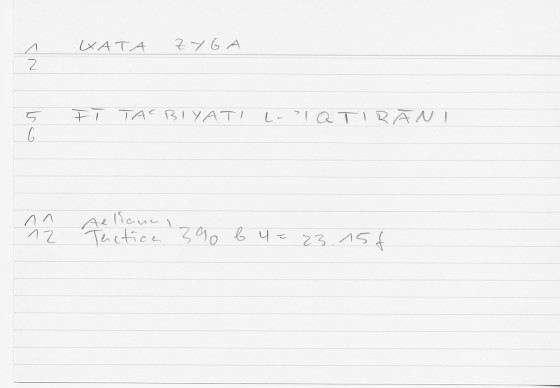 1 KATA ZYGA
2
5 FĪ TAʿBIYATI L-ʾIQTIRĀNI
6
11 Aelianus,
12 Tactica 390 b 4 = 23.15f